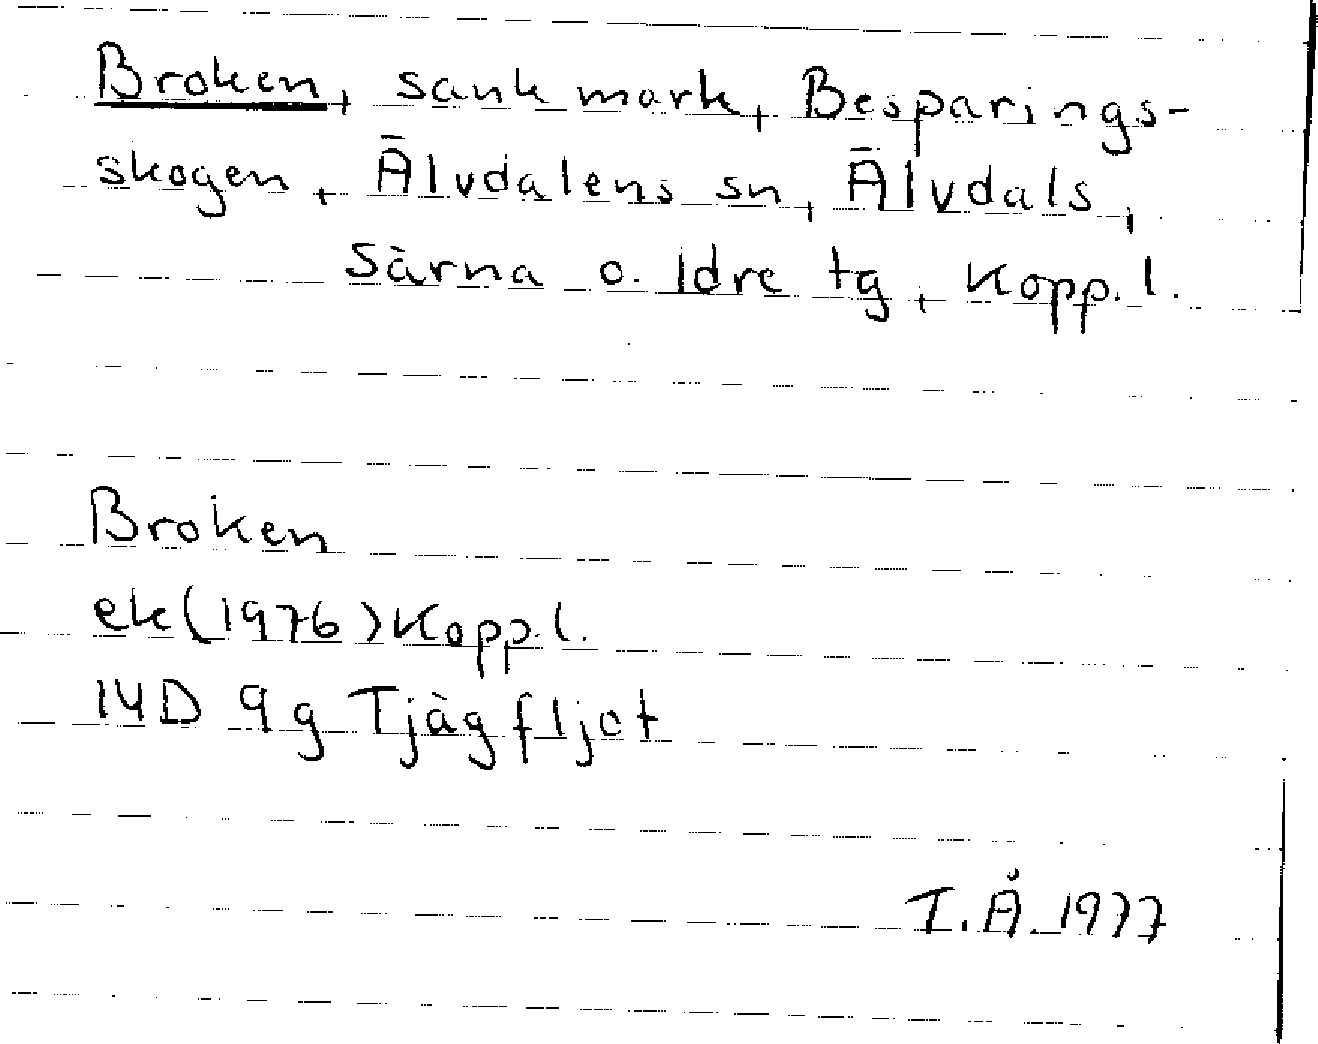 Broken, sank mark, Besparings-
skogen, Älvdalens sn, Älvdals,
Särna o. Idre tg, Kopp. l.
Broken
ek (1976) Kopp. l.
14D 9g Tjägfljot
T.Å 1977